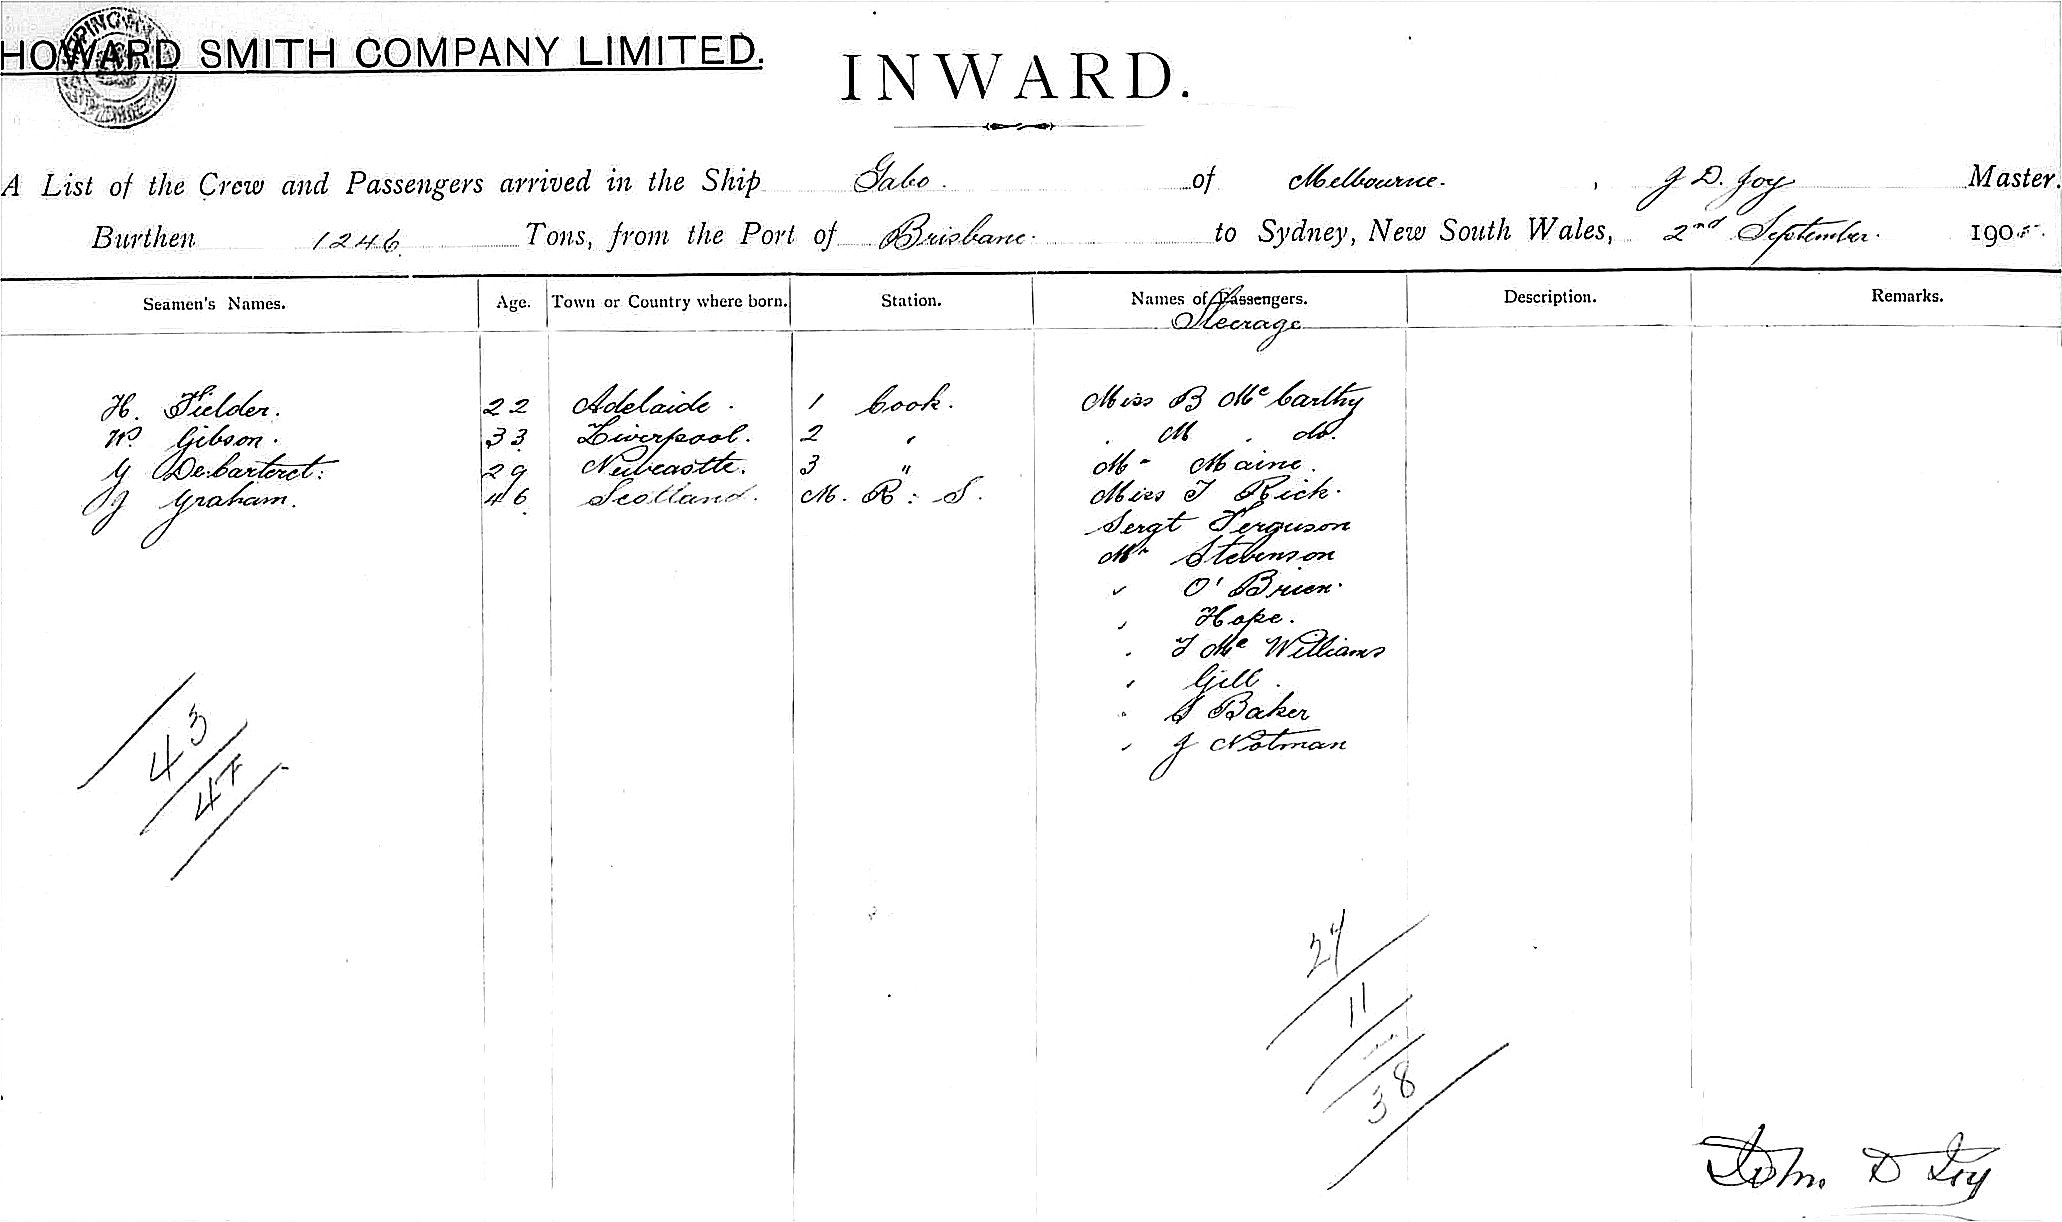 HOWARD SMITH COMPANY LIMITED.
INWARD.
A List of the Crew and Passengers arrived in the Ship Gabo. of Melbourne. , J D. Joy Master.
Burthen 1246 Tons, from the Port of Brisbane. to Sydney, New South Wales, 2nd September. 1905.
Seamen's Names. Age. Town or Country where born. Station. Names of Passengers. Description. Remarks.
Steerage
H. Fielder. 22 Adelaide. 1 Cook. Miss B McCarthy
W. Gibson. 33 Liverpool. 2 " " M " do.
G DeCarteret. 29 Newcastle. 3 " Mr Maine.
J Graham. 46 Scotland. M. R. S. Miss T Rick.
Sergt Ferguson
Mr Stevenson
" O'Brien.
" Hope.
" T McWilliams
" Gill.
" S Baker
" J Notman
43
47
27
11
38
John D Joy